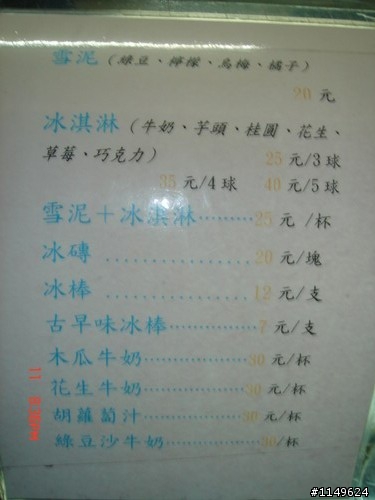 雪泥（綠豆、檸檬、烏梅、橘子）
20 元
冰淇淋（牛奶、芋頭、桂圓、花生、
草莓、巧克力） 25 元/3 球
35 元/4 球 40 元/5 球
雪泥＋冰淇淋………25 元 /杯
冰磚 ………………20 元/塊
冰棒 ………………12 元/支
古早味冰棒…………7 元/支
木瓜牛奶……………30 元/杯
花生牛奶……………30 元/杯
胡蘿蔔汁……………30 元/杯
綠豆沙牛奶…………30/杯
#1149624